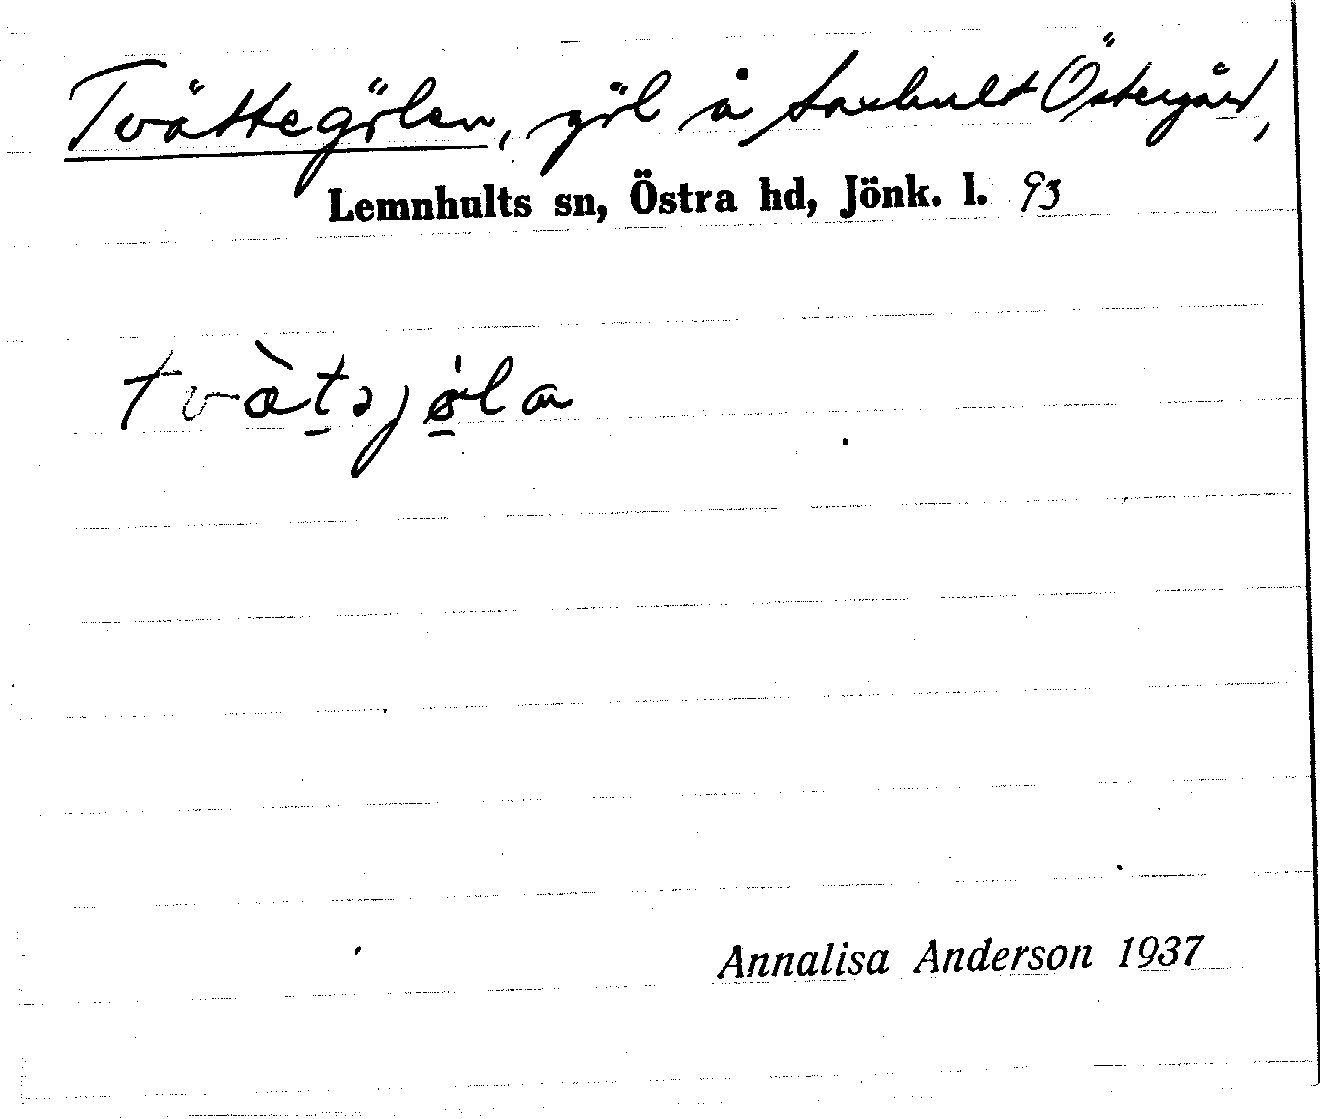 Tvättegölen, göl å Saxhult Östergård,
Lemnhults sn, Östra hd, Jönk. l. 93
tvàtəjøla
Annalisa Anderson 1937